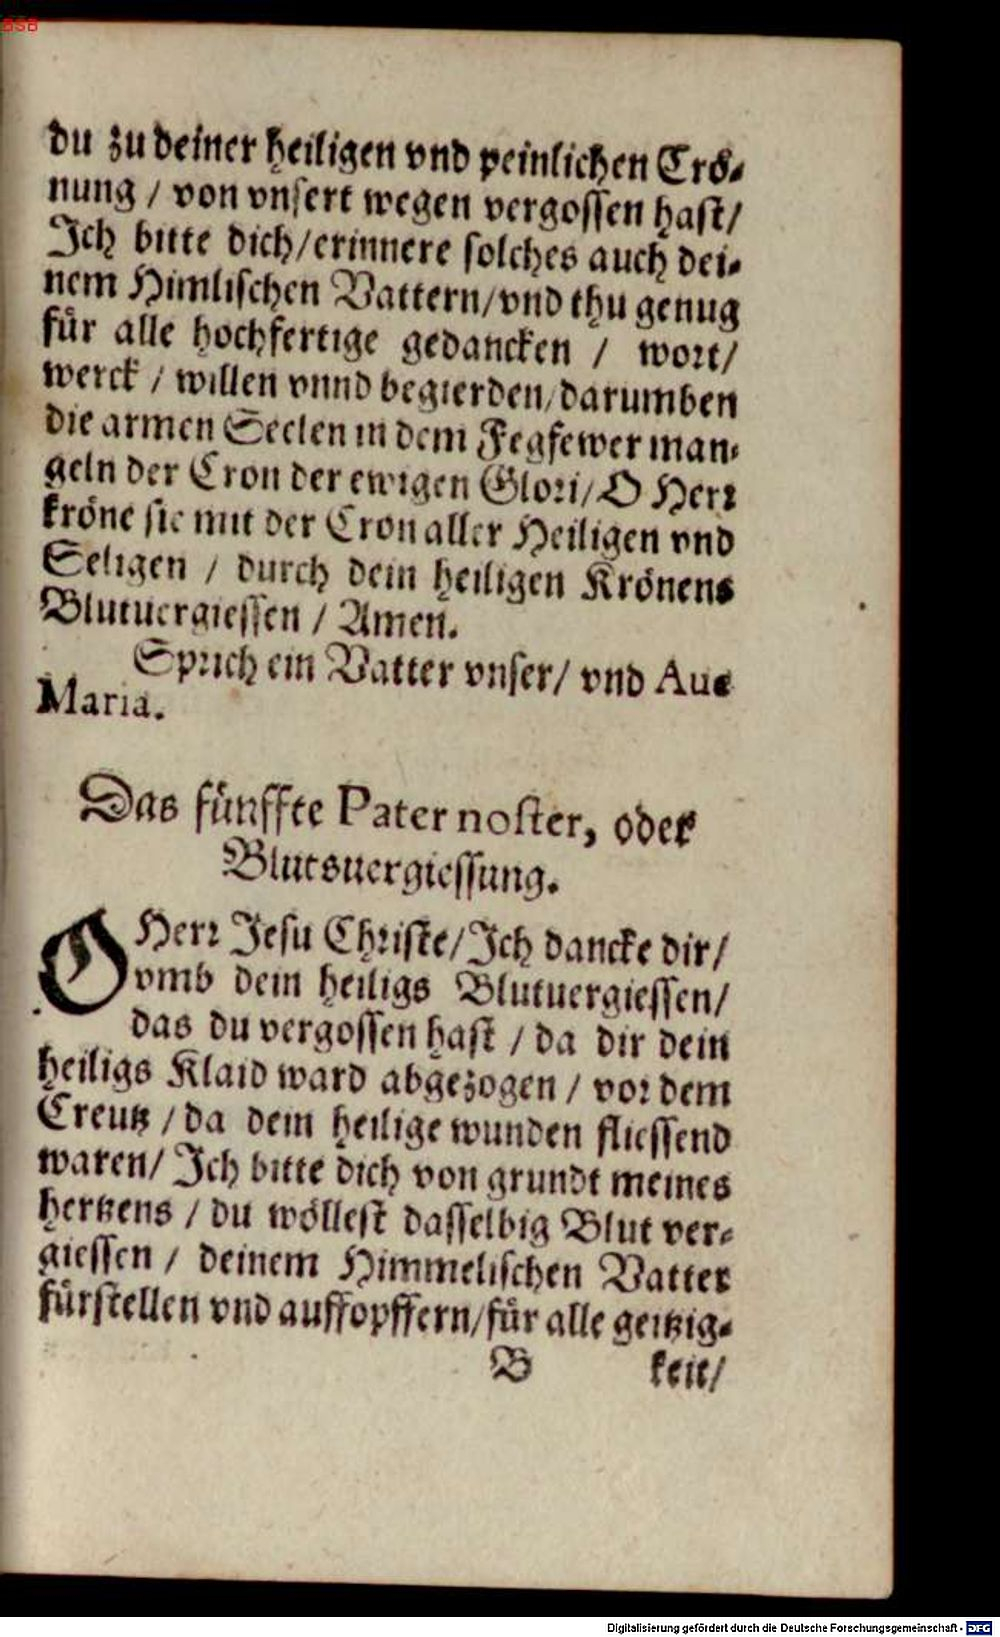 BSB
du zu deiner heiligen vnd peinlichen Crö-
nung / von vnsert wegen vergossen hast/
Ich bitte dich/erinnere solches auch dei-
nem Himlischen Vattern/vnd thu genug
für alle hochfertige gedancken / wort/
werck / willen vnnd begierden/darumben
die armen Seelen in dem Fegfewer man-
geln der Cron der ewigen Glori/O Herr
kröne sie mit der Cron aller Heiligen vnd
Seligen / durch dein heiligen Krönens
Blutuergiessen / Amen.
Sprich ein Vatter vnser/ vnd Aue
Maria.
Das fünffte Pater noster, oder
Blutsuergiessung.
O Herr Jesu Christe/Ich dancke dir/
vmb dein heiligs Blutuergiessen/
das du vergossen hast / da dir dein
heiligs Klaid ward abgezogen / vor dem
Creutz / da dein heilige wunden fliessend
waren/ Ich bitte dich von grundt meines
hertzens / du wöllest dasselbig Blut ver-
giessen / deinem Himmelischen Vatter
fürstellen vnd auffopffern/für alle geitzig-
B keit/
Digitalisierung gefördert durch die Deutsche Forschungsgemeinschaft - DFG